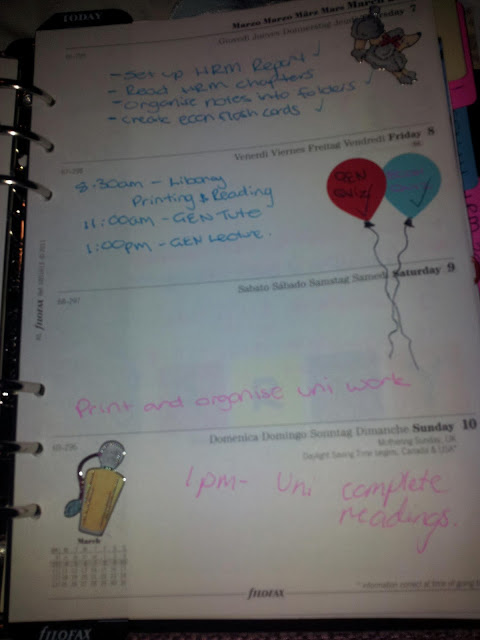 TODAY
Marzo Marzo März Mars March
Giovedì Jueves Donnerstag Jeudi Thursday 7
- Set up HRM Report ✓
- Read HRM chapters
- organise notes into folders ✓
- create econ flash cards ✓
Venerdì Viernes Freitag Vendredi Friday 8
67-298
8:30am - Library
Printing & Reading
11:00am - GEN Tute
1:00pm - GEN Lecture.
GEN
QUIZ
Sabato Sábado Samstag Samedi Saturday 9
68-297
Print and organise uni work
Domenica Domingo Sonntag Dimanche Sunday 10
69-296
Mothering Sunday, UK
Daylight Saving Time begins, Canada & USA*
1pm- Uni complete
readings.
March
filofax
* information correct at time of going
FILOFAX